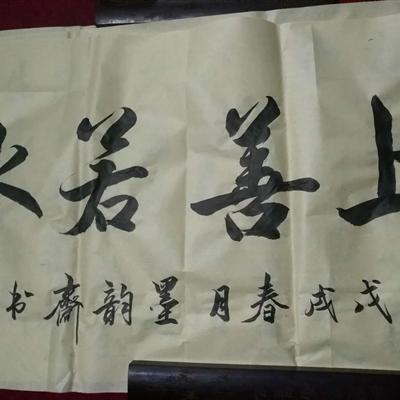 上善若水
戊戌春月墨韵斋书